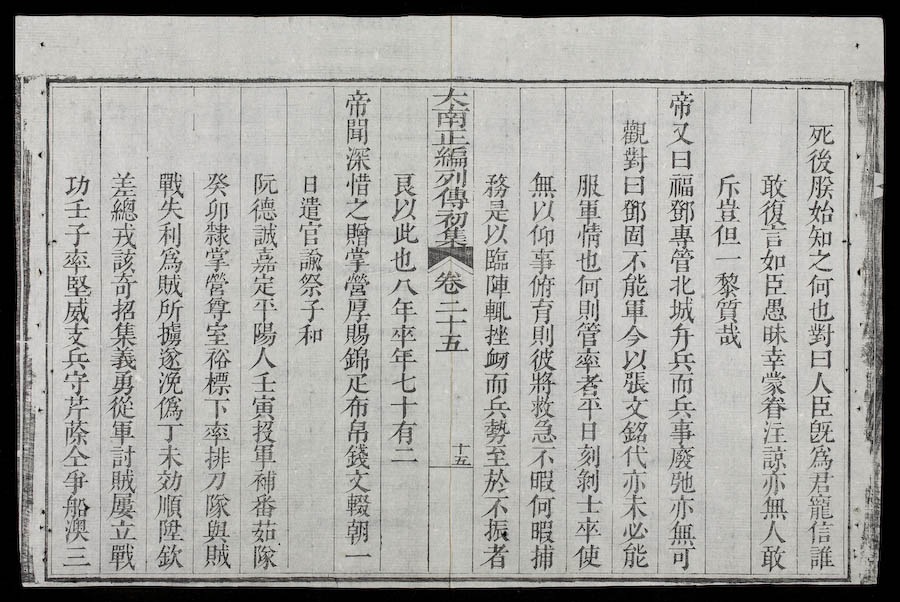 死後朕始知之何也對曰人臣旣爲君寵信誰
敢復言如臣愚昧幸蒙眷注諒亦無人敢
斥豈但一黎質哉
帝又曰福鄧專管北城弁兵而兵事廢弛亦無可
觀對曰鄧固不能軍今以張文銘代亦未必能
服軍情也何則管率者平日刻剝士卒使
無以仰事俯育則彼將救急不暇何暇捕
務是以臨陣輒挫衂而兵勢至於不振者
良以此也八年卒年七十有二
帝聞深惜之贈掌營厚賜錦疋布帛錢文輟朝一
日遣官諭祭子和
阮德誠嘉定平陽人壬寅投軍補番茹隊
癸卯隸掌營尊室裕標下率排刀隊與賊
戰失利爲賊所擄遂浼僞丁未効順陞欽
差總戎該奇招集義勇從軍討賊屢立戰
功壬子率堅威支兵守芹蔭仝爭船澳三
大南正編列傳初集 卷二十五 十五